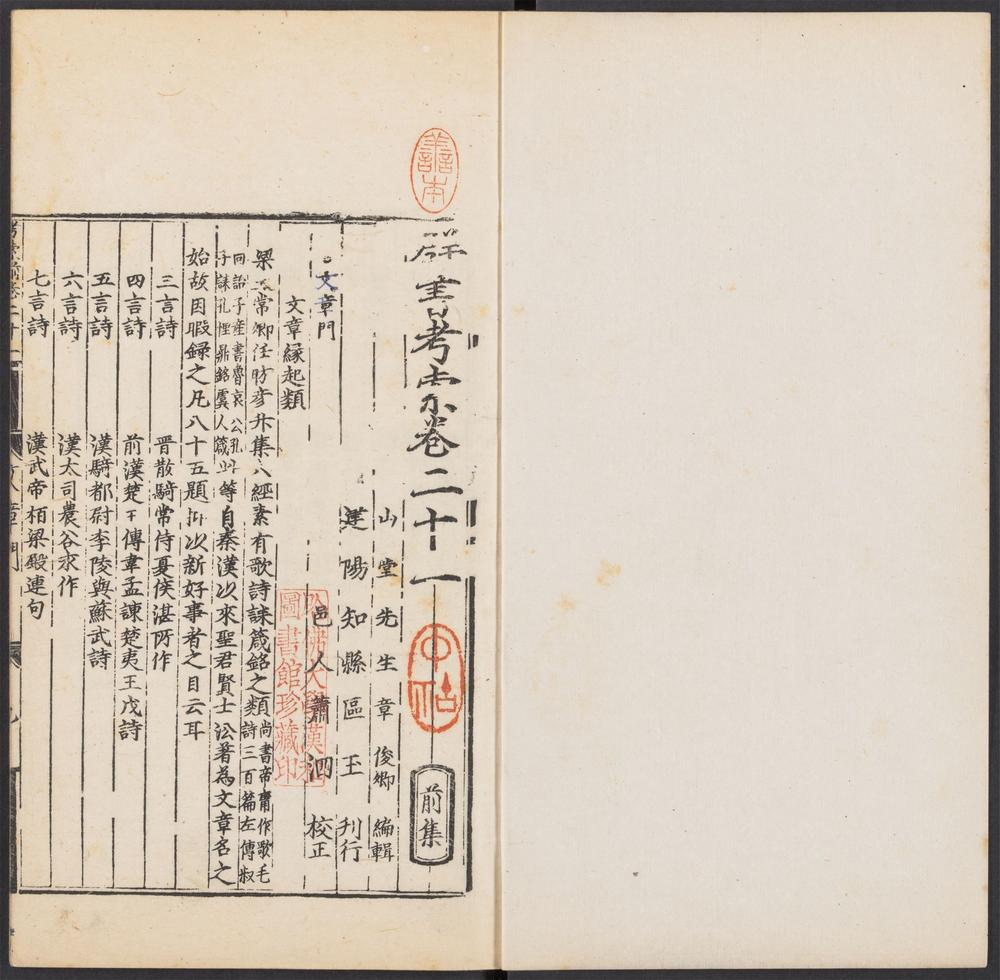 善本
群書考索卷二十一
前集
山堂先生章俊卿編輯
建陽知縣區玉刊行
邑人蕭泗校正
文章門
文章縁起類
梁太常卿任昉彦升集六經素有歌詩誄箴銘之類尚書帝庸作歌毛詩三百篇左傳叔
向詒子産書魯哀公孔子誄孔悝鼎銘虞人箴此等自秦漢以來聖君賢士㳂著為文章名之
始故因暇録之凡八十五題抑以新好事者之目云耳
三言詩 晋散騎常侍夏侯湛所作
四言詩 前漢楚王傳韋孟諫楚夷王戊詩
五言詩 漢騎都尉李陵與蘇武詩
六言詩 漢大司農谷永作
七言詩 漢武帝柏梁殿連句
哈佛大學漢和圖書館珍藏印